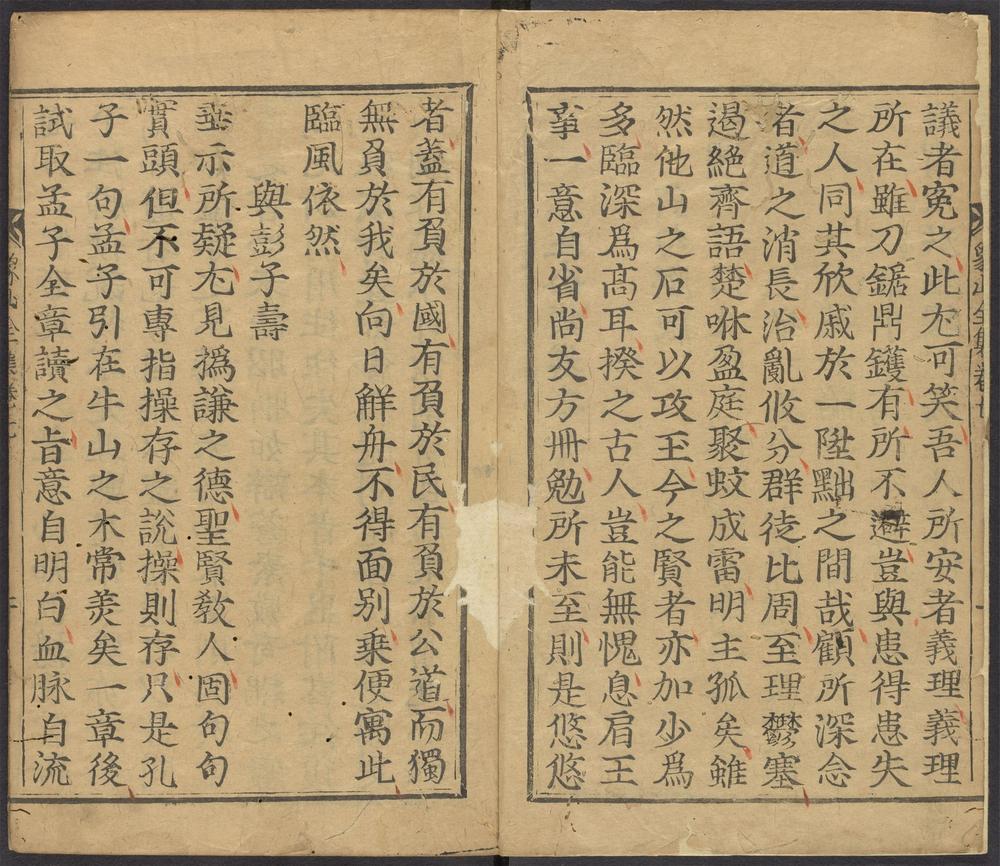 議者冤之此尤可笑吾人所安者義理義理
所在雖刀鋸鼎鑊有所不避豈與患得患失
之人同其欣戚於一陞黜之間哉顧所深念
者道之消長治亂攸分群徒比周至理鬱塞
遏絕齊語楚咻盈庭聚蚊成雷明主孤矣雖
然他山之石可以攻玉今之賢者亦加少爲
多臨深爲高耳揆之古人豈能無愧息肩王
事一意自省尚友方冊勉所未至則是悠悠
者蓋有負於國有負於民有負於公道而獨
無負於我矣向日鮮舟不得面別乗便寓此
臨風依然
與彭子壽
垂示所疑尤見撝謙之德聖賢敎人固句句
實頭但不可專指操存之說操則存只是孔
子一句孟子引在牛山之木常羙矣一章後
試取孟子全章讀之旨意自明白血脉自流
象山全集卷